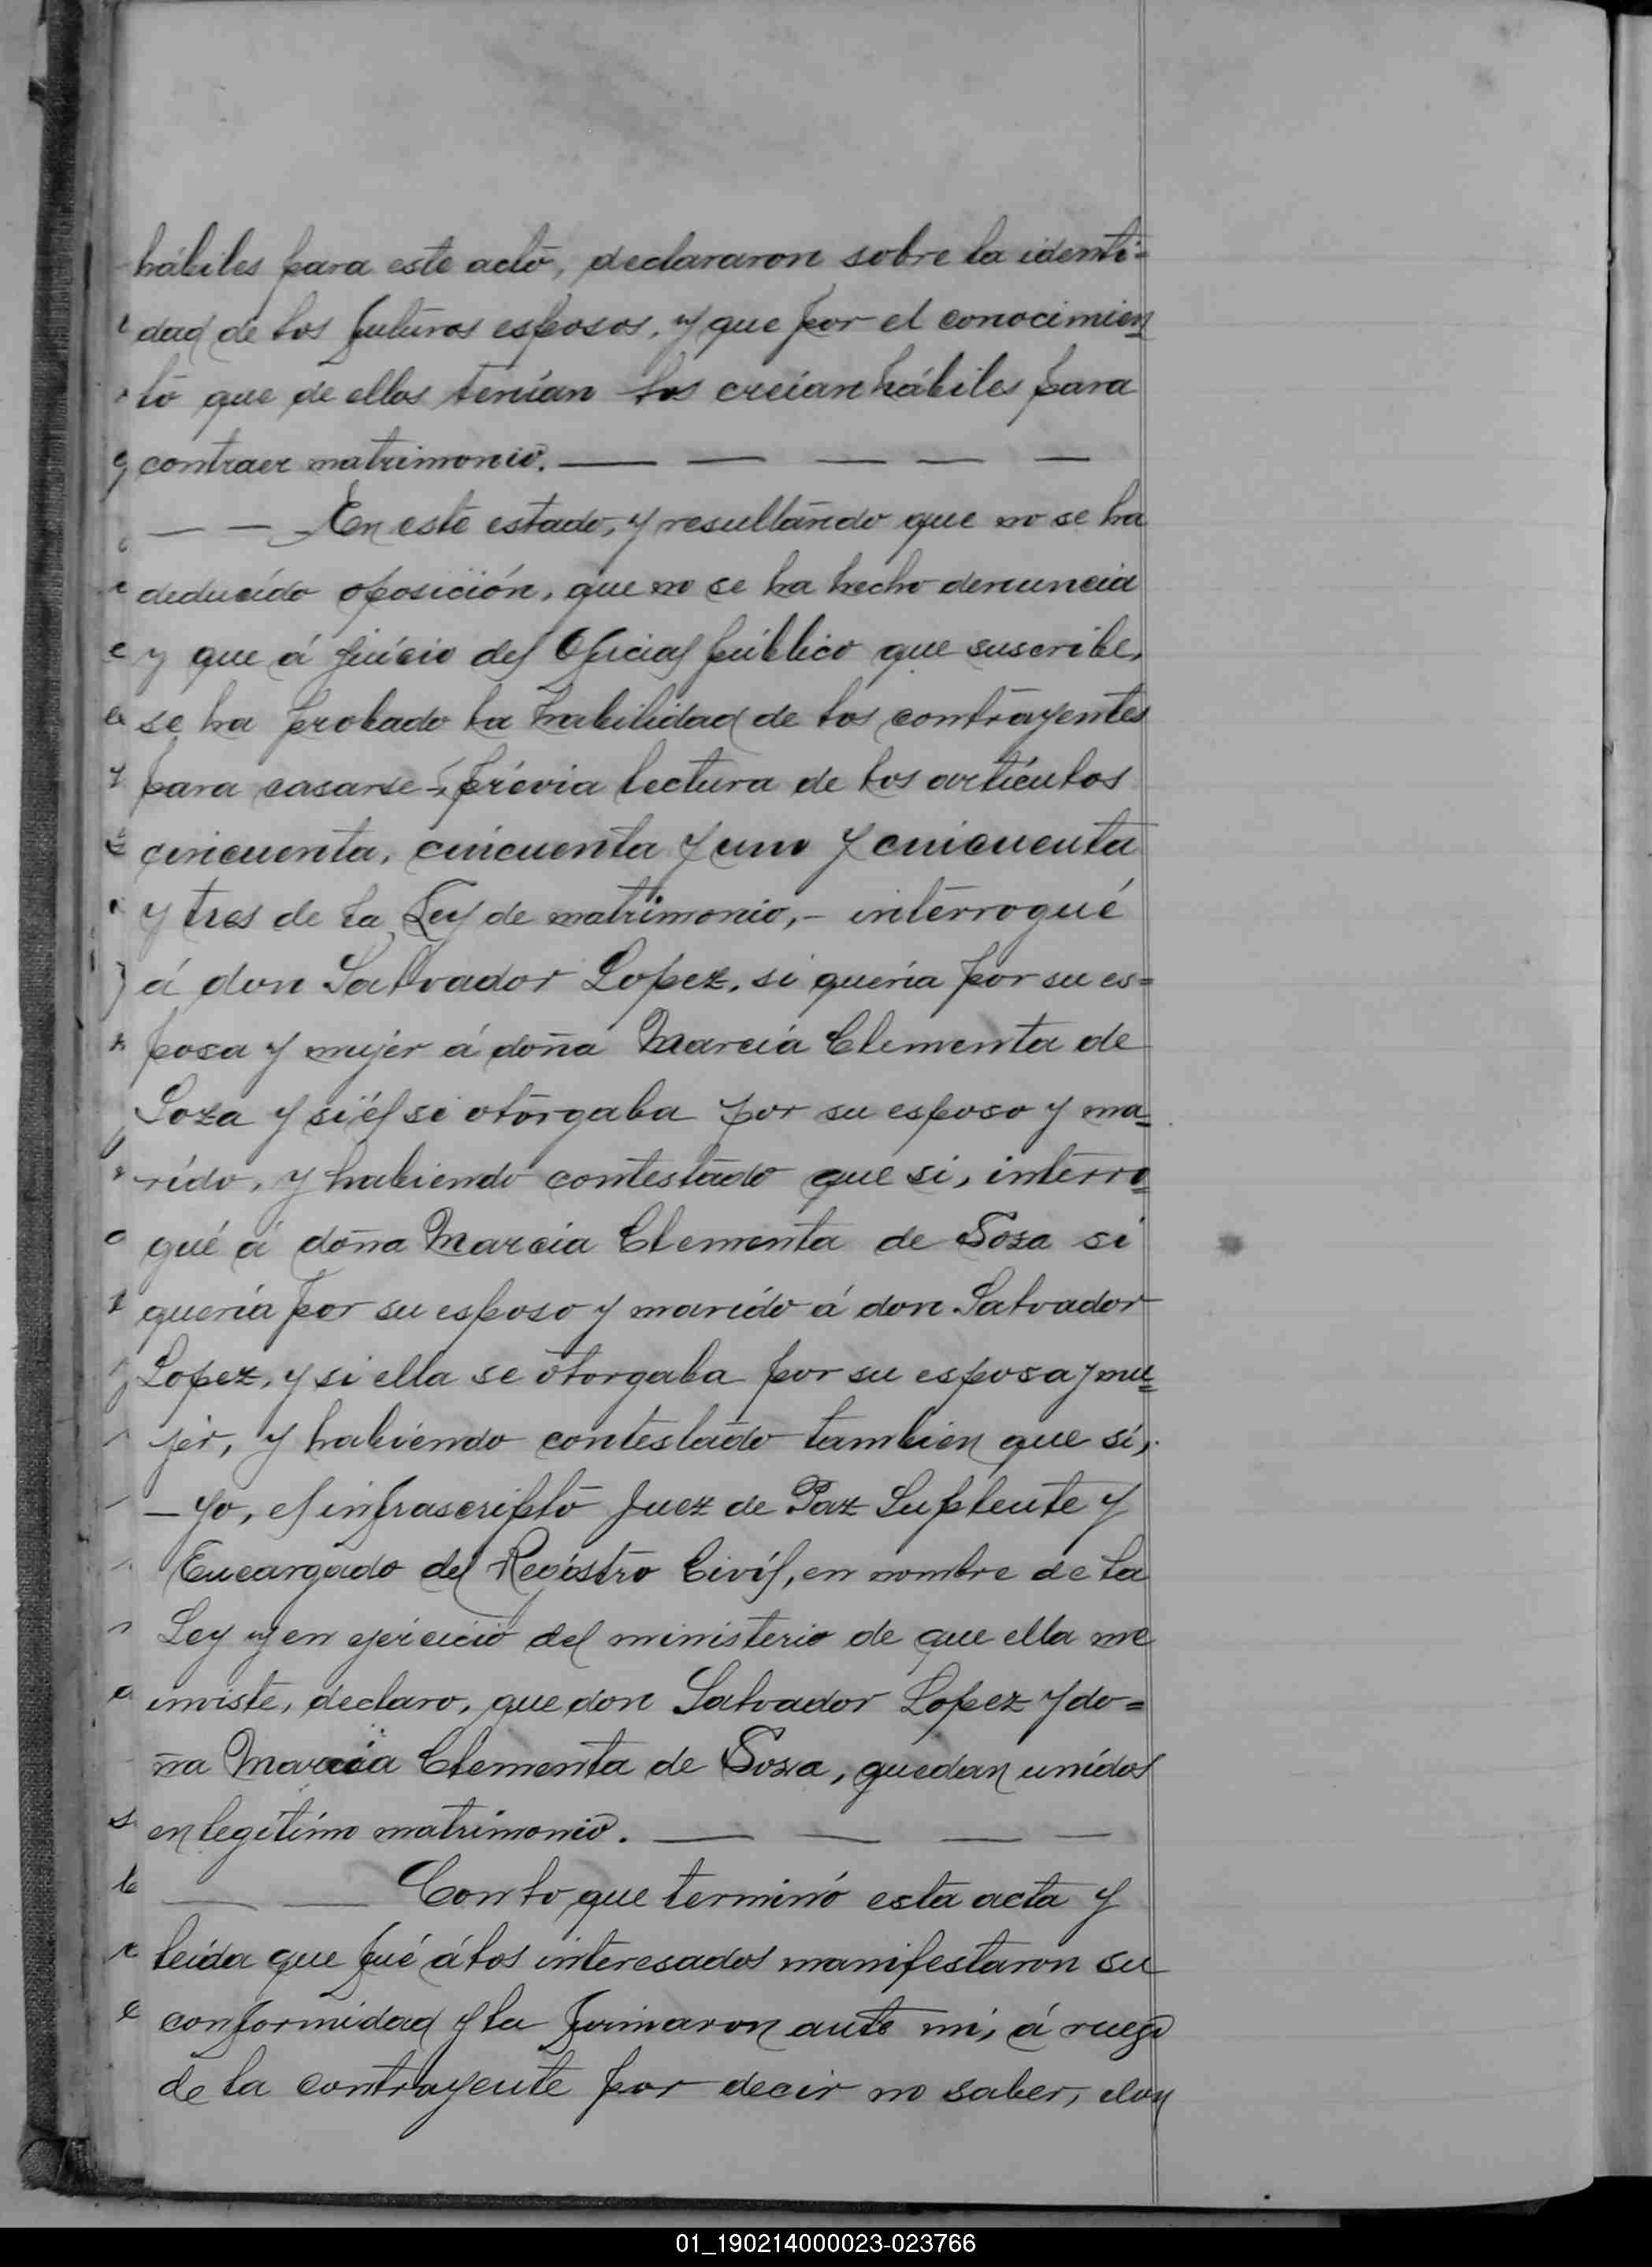 hábiles para este acto, declararon sobre la identi=
dad de los futuros esposos, y que por el conocimien
to que de ellos tenían los creían hábiles para
contraer matrimonio. — — — — —
— — En este estado, y resultando que no se ha
deducido oposición, que no se ha hecho denuncia
y que á juicio del Oficial público que suscribe,
se ha probado la habilidad de los contrayentes
para casarse -, prévia lectura de los artículos
cincuenta, cincuenta y uno y cincuenta
y tres de la Ley de matrimonio, - interrogué
á don Salvador Lopez, si quería por su es=
posa y mujer á doña Marcia Clementa de
Soza y si él se otorgaba por su esposo y ma
rido, y habiendo contestado que si, interro
gué á doña Marcia Clementa de Sosa si
quería por su esposo y marido á don Salvador
Lopez, y si ella se otorgaba por su esposa y mu=
jer, y habiendo contestado tambien que sí,
— Yo, el infrascripto Juez de Paz Suplente y
Encargado del Registro Civil, en nombre de la
Ley y en ejercicio del ministerio de que ella me
inviste, declaro, que don Salvador Lopez y do=
ña Marcia Clementa de Sosa, quedan unidos
en legítimo matrimonio. — — — —
— — Con lo que terminó esta acta y
leída que fué á los interesados manifestaron su
conformidad y la firmaron ante mi, á ruego
de la contrayente por decir no saber, don
01_190214000023-023766